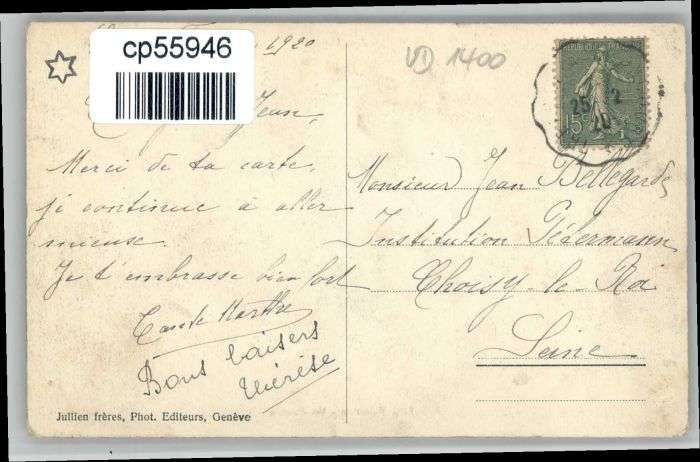 1920
cp55946
VD 1400
Jean,
Merci de ta carte,
je continue à aller
mieux.
Je t'embrasse bien fort
Tante Marthe
Bons baisers
Thérèse
Jullien frères, Phot. Editeurs, Genève
15c
25 2
20
Monsieur Jean Bellegarde
Institution
Choisy-le-Roi
Seine